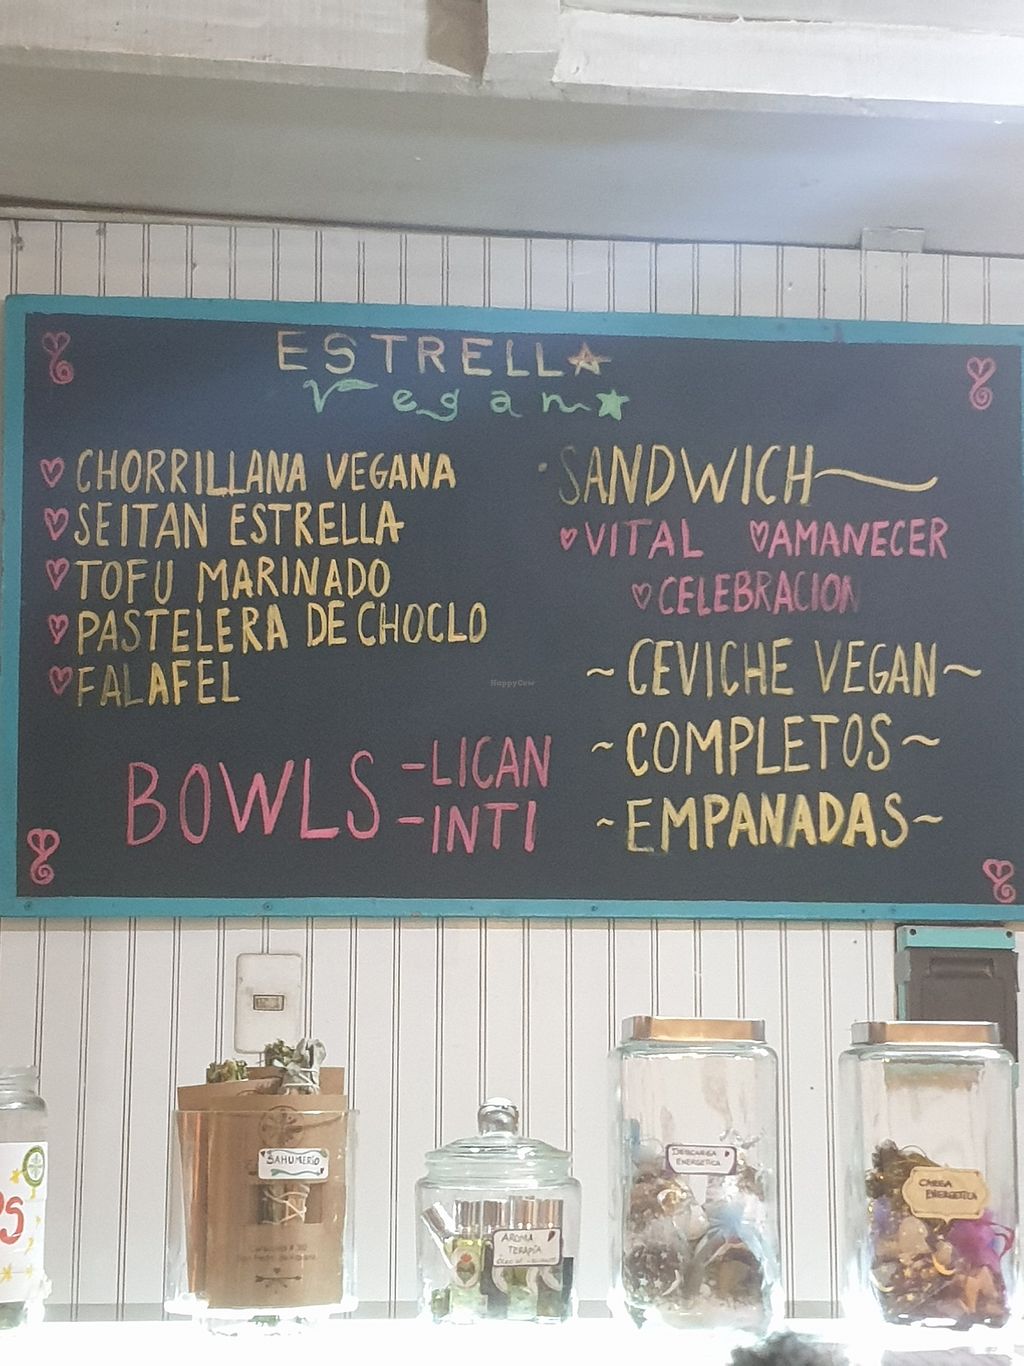 ESTRELLA
Vegan
CHORRILLANA VEGANA
SEITAN ESTRELLA
TOFU MARINADO
PASTELERA DE CHOCLO
FALAFEL
BOWLS -LICAN
-INTI
SANDWICH
VITAL AMANECER
CELEBRACION
~CEVICHE VEGAN~
~COMPLETOS~
~EMPANADAS~
HappyCow
SAHUMERIO
AROMA
TERAPIA
DESCARGA
ENERGETICA
CARGA
ENERGETICA
PS